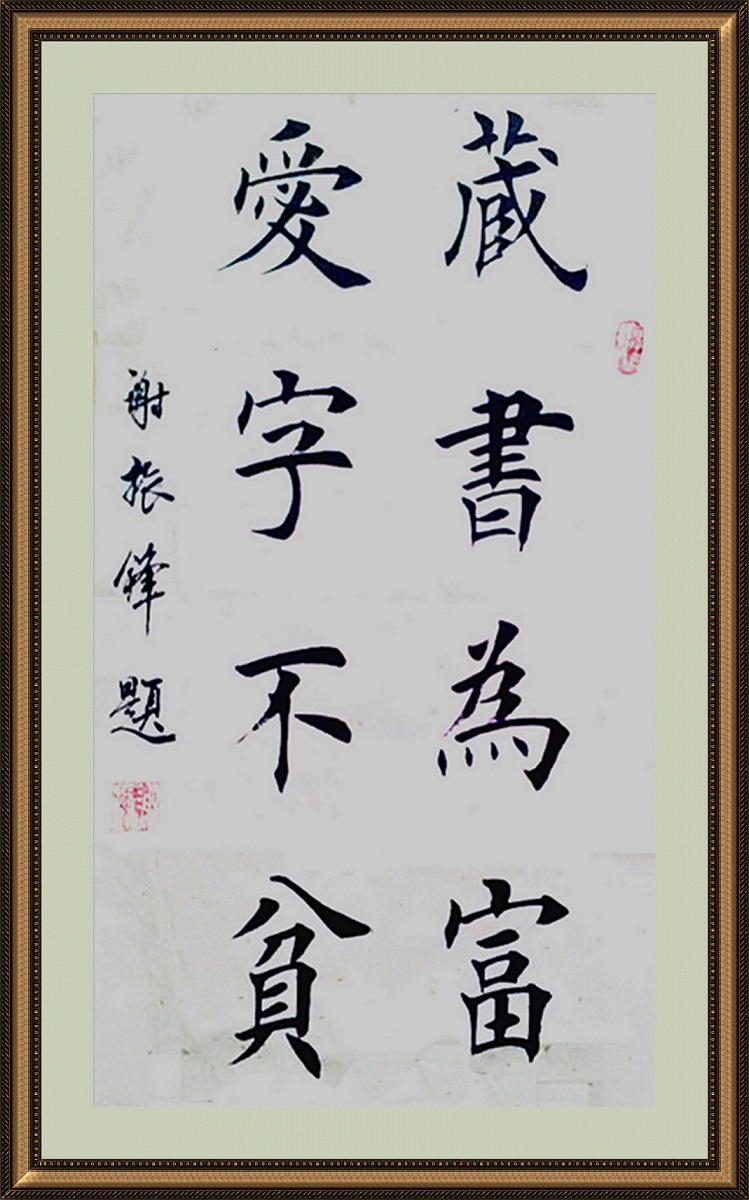 藏書為富
愛字不貧
謝振鋒題